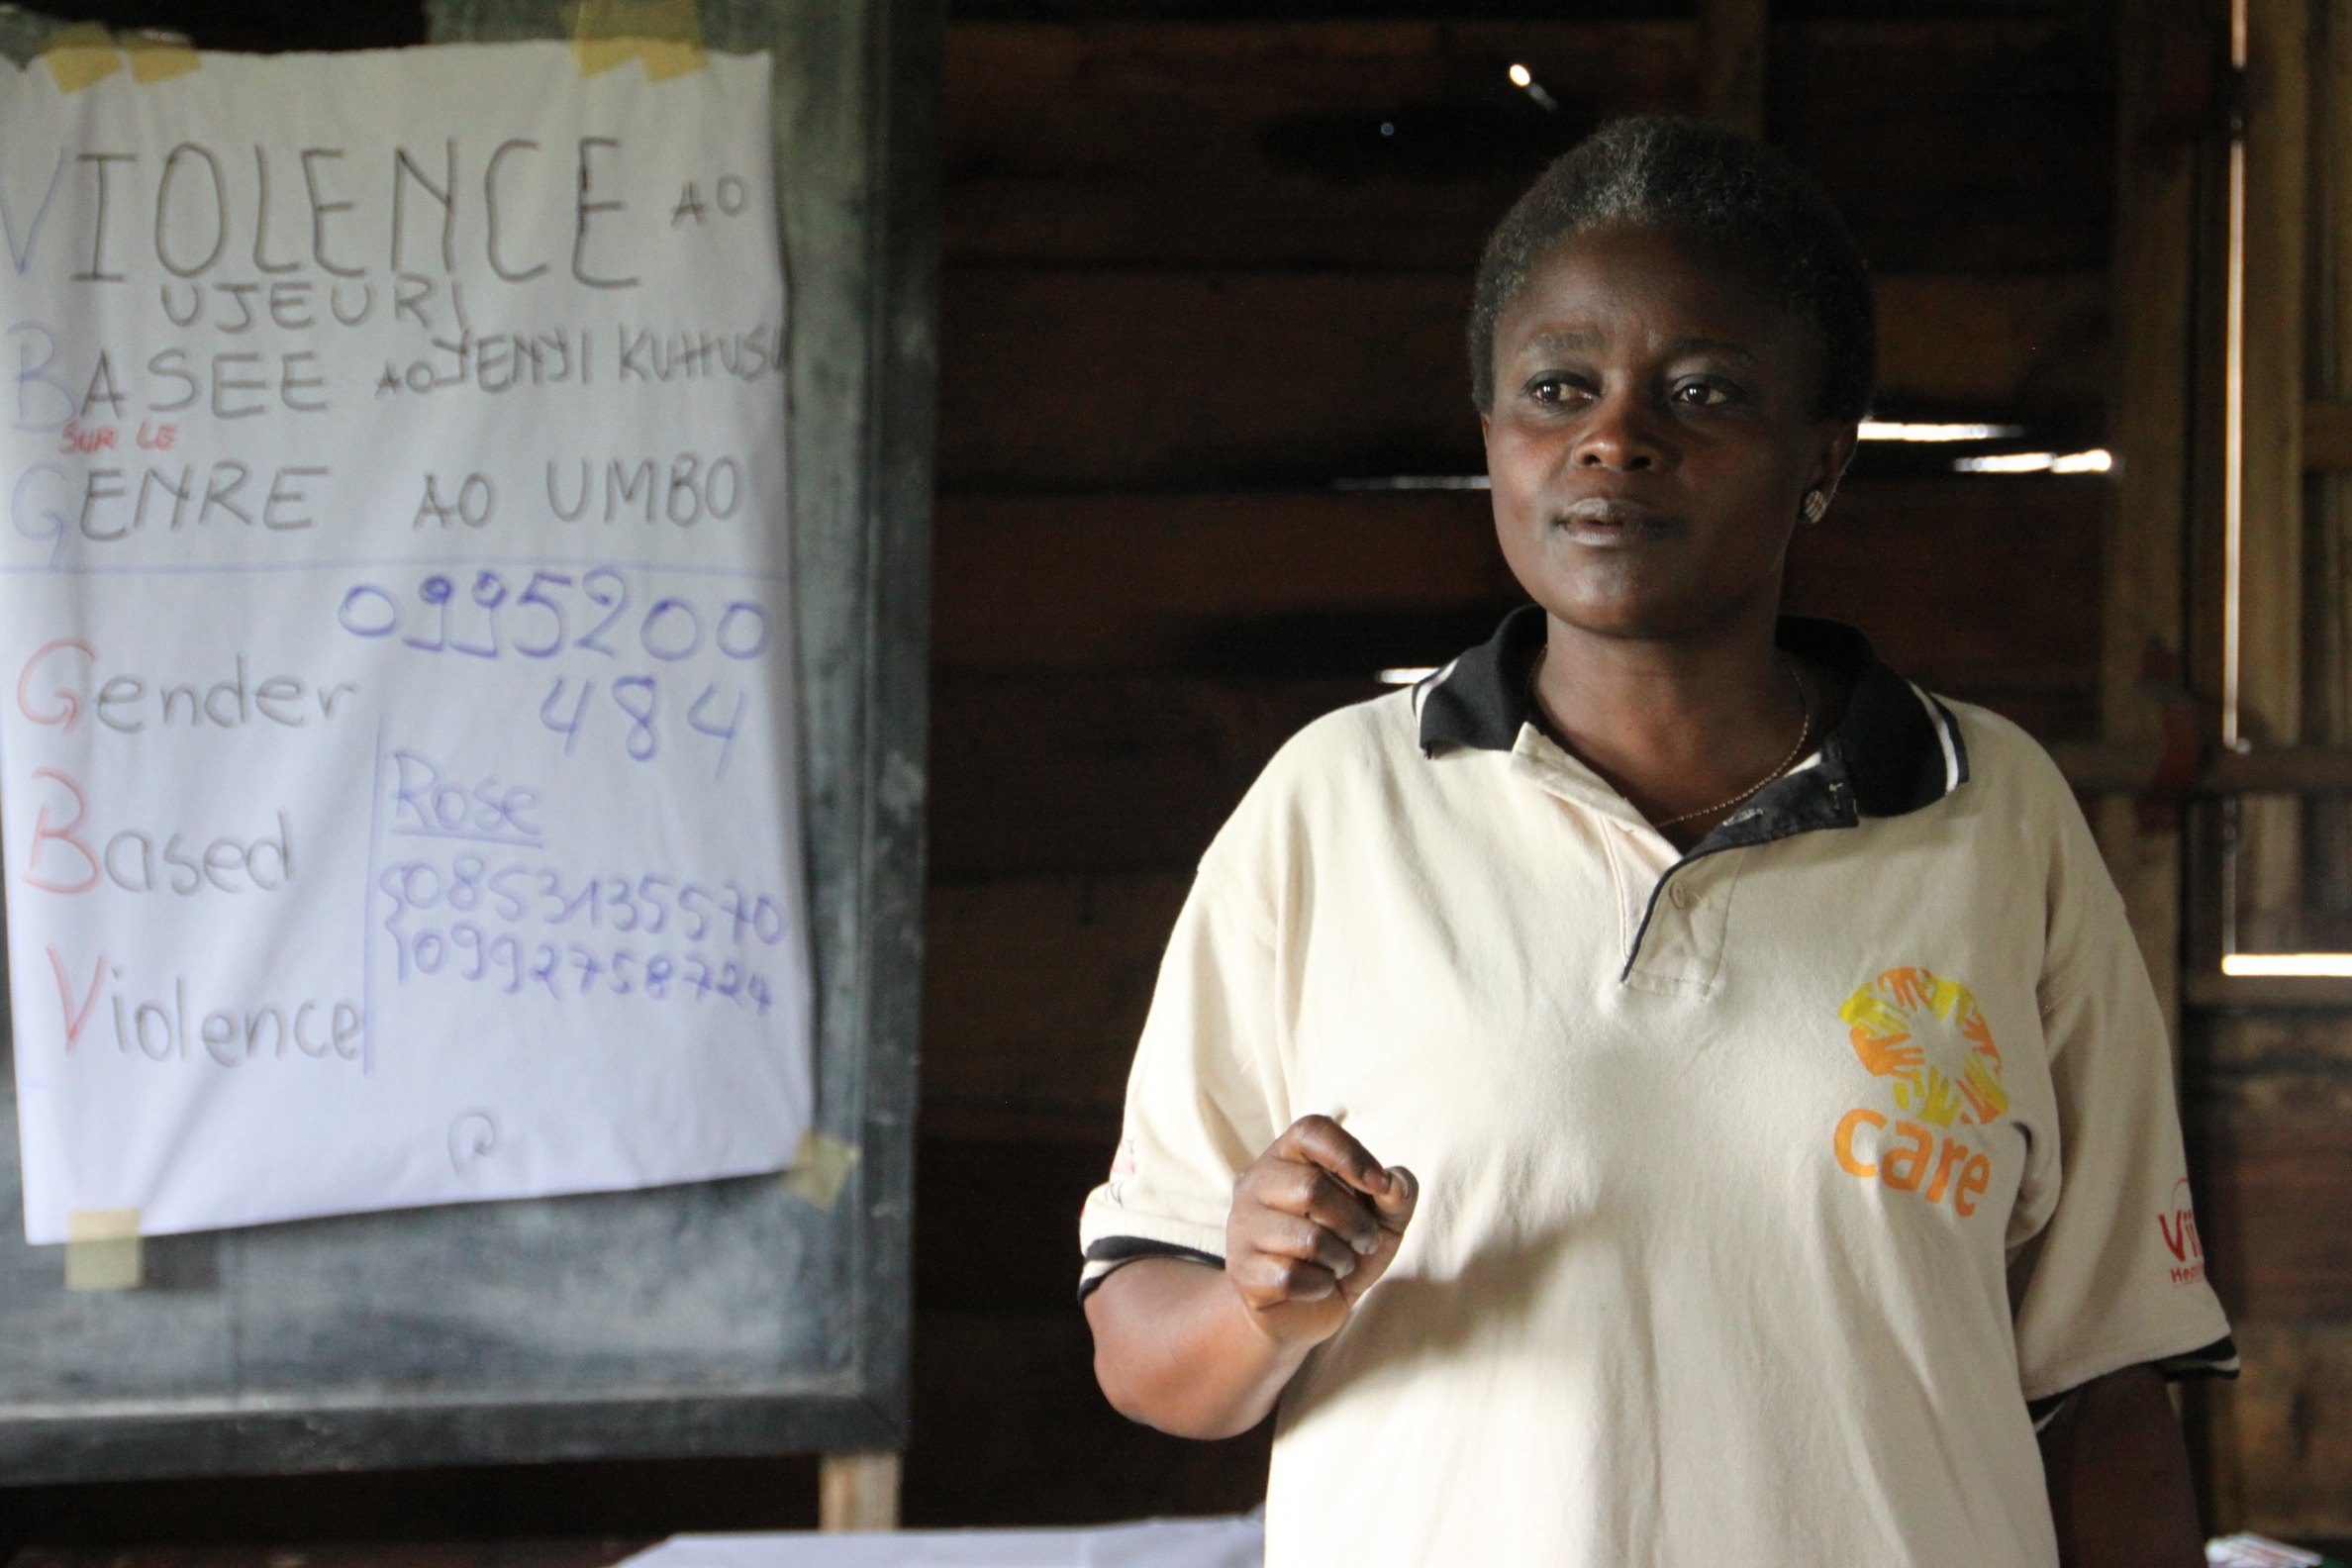 VIOLENCE AO
UJEURI
BASEE AO JENYI KUHUSU
SUR LE
GENRE AO UMBO
0995200
484
Gender
Rose
Based
0853135570
0992758724
Violence
care